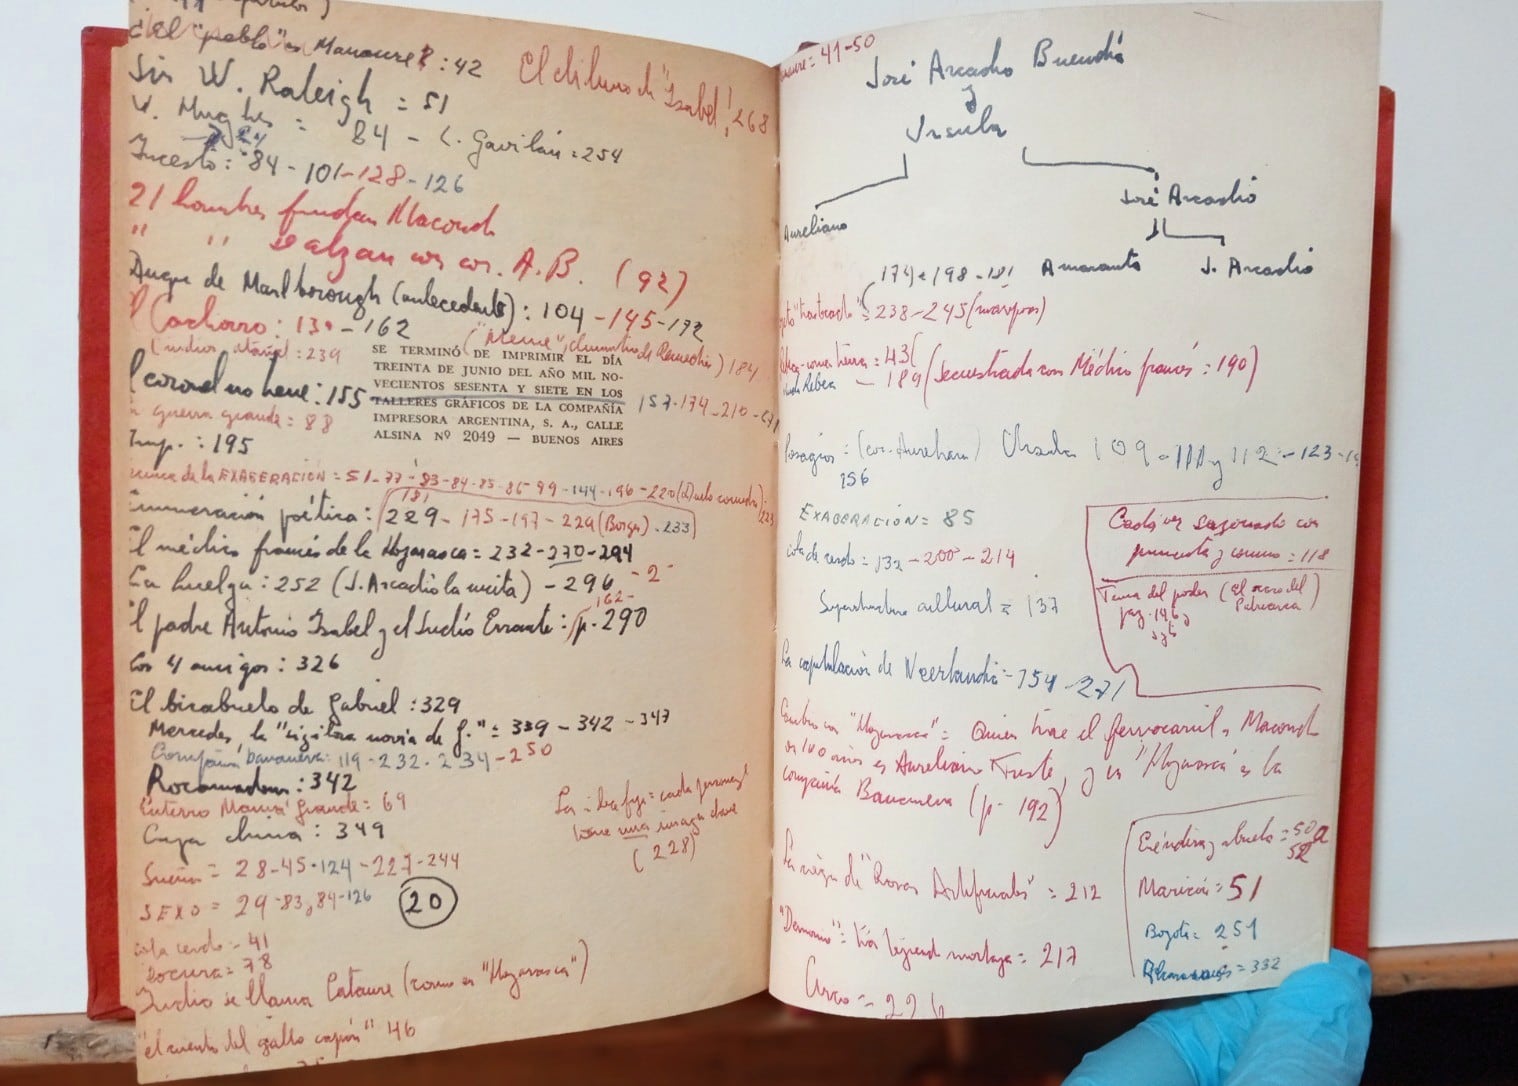 ¿el "pueblo" es Manaure?: 42
El diluvio de "Isabel", 268
Sir W. Raleigh = 51
V. Hughes = 84 - L. Gavilán = 254
Incesto: 84 - 101 - 128 - 126
21 hombres fundan Macondo
" " se alzan con cor. A.B. (92)
Duque de Marlborough (antecedente): 104 - 145 - 172
Cachorro: 130 - 162
("Meme", de Remedios) 184
(indios : 239
SE TERMINÓ DE IMPRIMIR EL DÍA
TREINTA DE JUNIO DEL AÑO MIL NO-
VECIENTOS SESENTA Y SIETE EN LOS
TALLERES GRÁFICOS DE LA COMPAÑÍA
IMPRESORA ARGENTINA, S. A., CALLE
ALSINA Nº 2049 — BUENOS AIRES
El coronel no tiene: 155
157 - 174 - 210 - 271
guerra grande: 88
Imp.: 195
de la EXAGERACIÓN = 51 - 77 - 83 - 84 - 85 - 86 - 99 - 144 - 196 - 220 (Duelo
181
Enumeración poética: 229 - 175 - 197 - 229 (Borges) - 233
El médico francés de la Hojarasca = 232 - 270 - 294
La huelga: 252 (J. Arcadio la incita) - 296 - 2
162 -
El padre Antonio Isabel y el Judío Errante: p. 290
Los 4 amigos: 326
El bisabuelo de Gabriel: 329
Mercedes, la "sigilosa novia de G." = 339 - 342 - 347
Compañía bananera: 119 - 232 - 234 - 250
Rocamadour: 342
Entierro Mamá Grande = 69
La idea fija = cada personaje
tiene una imagen clave
(228)
Caja china: 349
Sueños = 28 - 45 - 124 - 227 - 244
SEXO = 29 - 83, 84 - 126
20
cola cerdo = 41
Locura = 78
Indio se llama Cataure (como en "Hojarasca")
"el cuento del gallo capón" 46
= 41-50
José Arcadio Buendía
y
Ursula
Aureliano
José Arcadio
Amaranta
J. Arcadio
174 - 198 - 181
= 238 - 245 (mariposas)
come tierra = 43
Rebeca - 189 (Secuestrada con Médico francés: 190)
Presagios: (cor. Aureliano) Ursula 109 - 111 y 112 - 123
156
EXAGERACIÓN = 85
Cadáver sazonado con
pimienta y comino = 118
cola de cerdo = 132 - 200 - 214
Tema del poder (El otoño del
Patriarca
pag. 146 y
Superestructura cultural = 137
La capitulación de Neerlandia = 154 - 271
Cambio con "Hojarasca" = Quien trae el ferrocarril a Macondo
en 100 años es Aureliano Triste, y en "Hojarasca" es la
compañía Bananera (p. 192)
Eréndira y abuela = 50
52
La de "Rosas Artificiales" = 212
Maricón = 51
Bogotá = 251
= 332
tejiendo mortaja = 217
Circo = 226